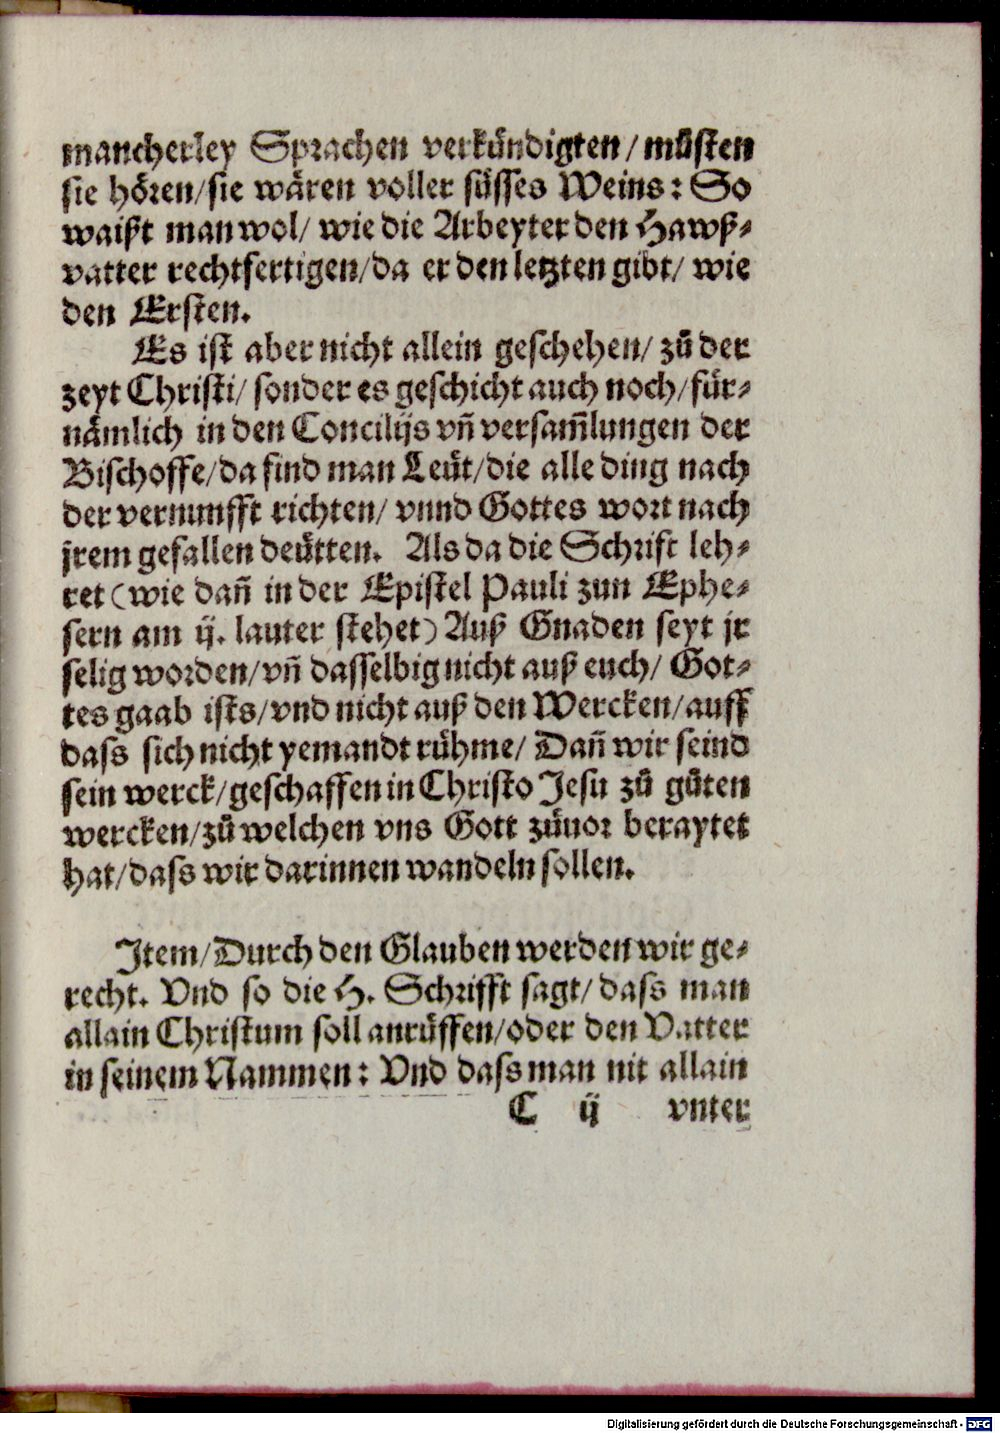 mancherley Sprachen verkündigten / müsten
sie hören/sie wären voller süsses Weins: So
waißt man wol/ wie die Arbeyter den Hawß-
vatter rechtfertigen/da er den letzten gibt/ wie
den Ersten.
Es ist aber nicht allein geschehen/ zů der
zeyt Christi/ sonder es geschicht auch noch/für-
nämlich in den Concilijs vñ versam̃lungen der
Bischoffe/da find man Leüt/die alle ding nach
der vernunfft richten/ vnnd Gottes wort nach
jrem gefallen deütten. Als da die Schrift leh-
ret (wie dañ in der Epistel Pauli zun Ephe-
sern am ij. lauter stehet) Auß Gnaden seyt jr
selig worden/vñ dasselbig nicht auß euch/ Got-
tes gaab ists/vnd nicht auß den Wercken/auff
dass sich nicht yemandt rühme/ Dañ wir seind
sein werck/geschaffen in Christo Jesu zů gůten
wercken/zů welchen vns Gott zůuor beraytet
hat/dass wir darinnen wandeln sollen.
Item/Durch den Glauben werden wir ge-
recht. Vnd so die H. Schrifft sagt/ dass man
allain Christum soll anrůffen/oder den Vatter
in seinem Nammen: Vnd dass man nit allain
C ij vnter
Digitalisierung gefördert durch die Deutsche Forschungsgemeinschaft - DFG